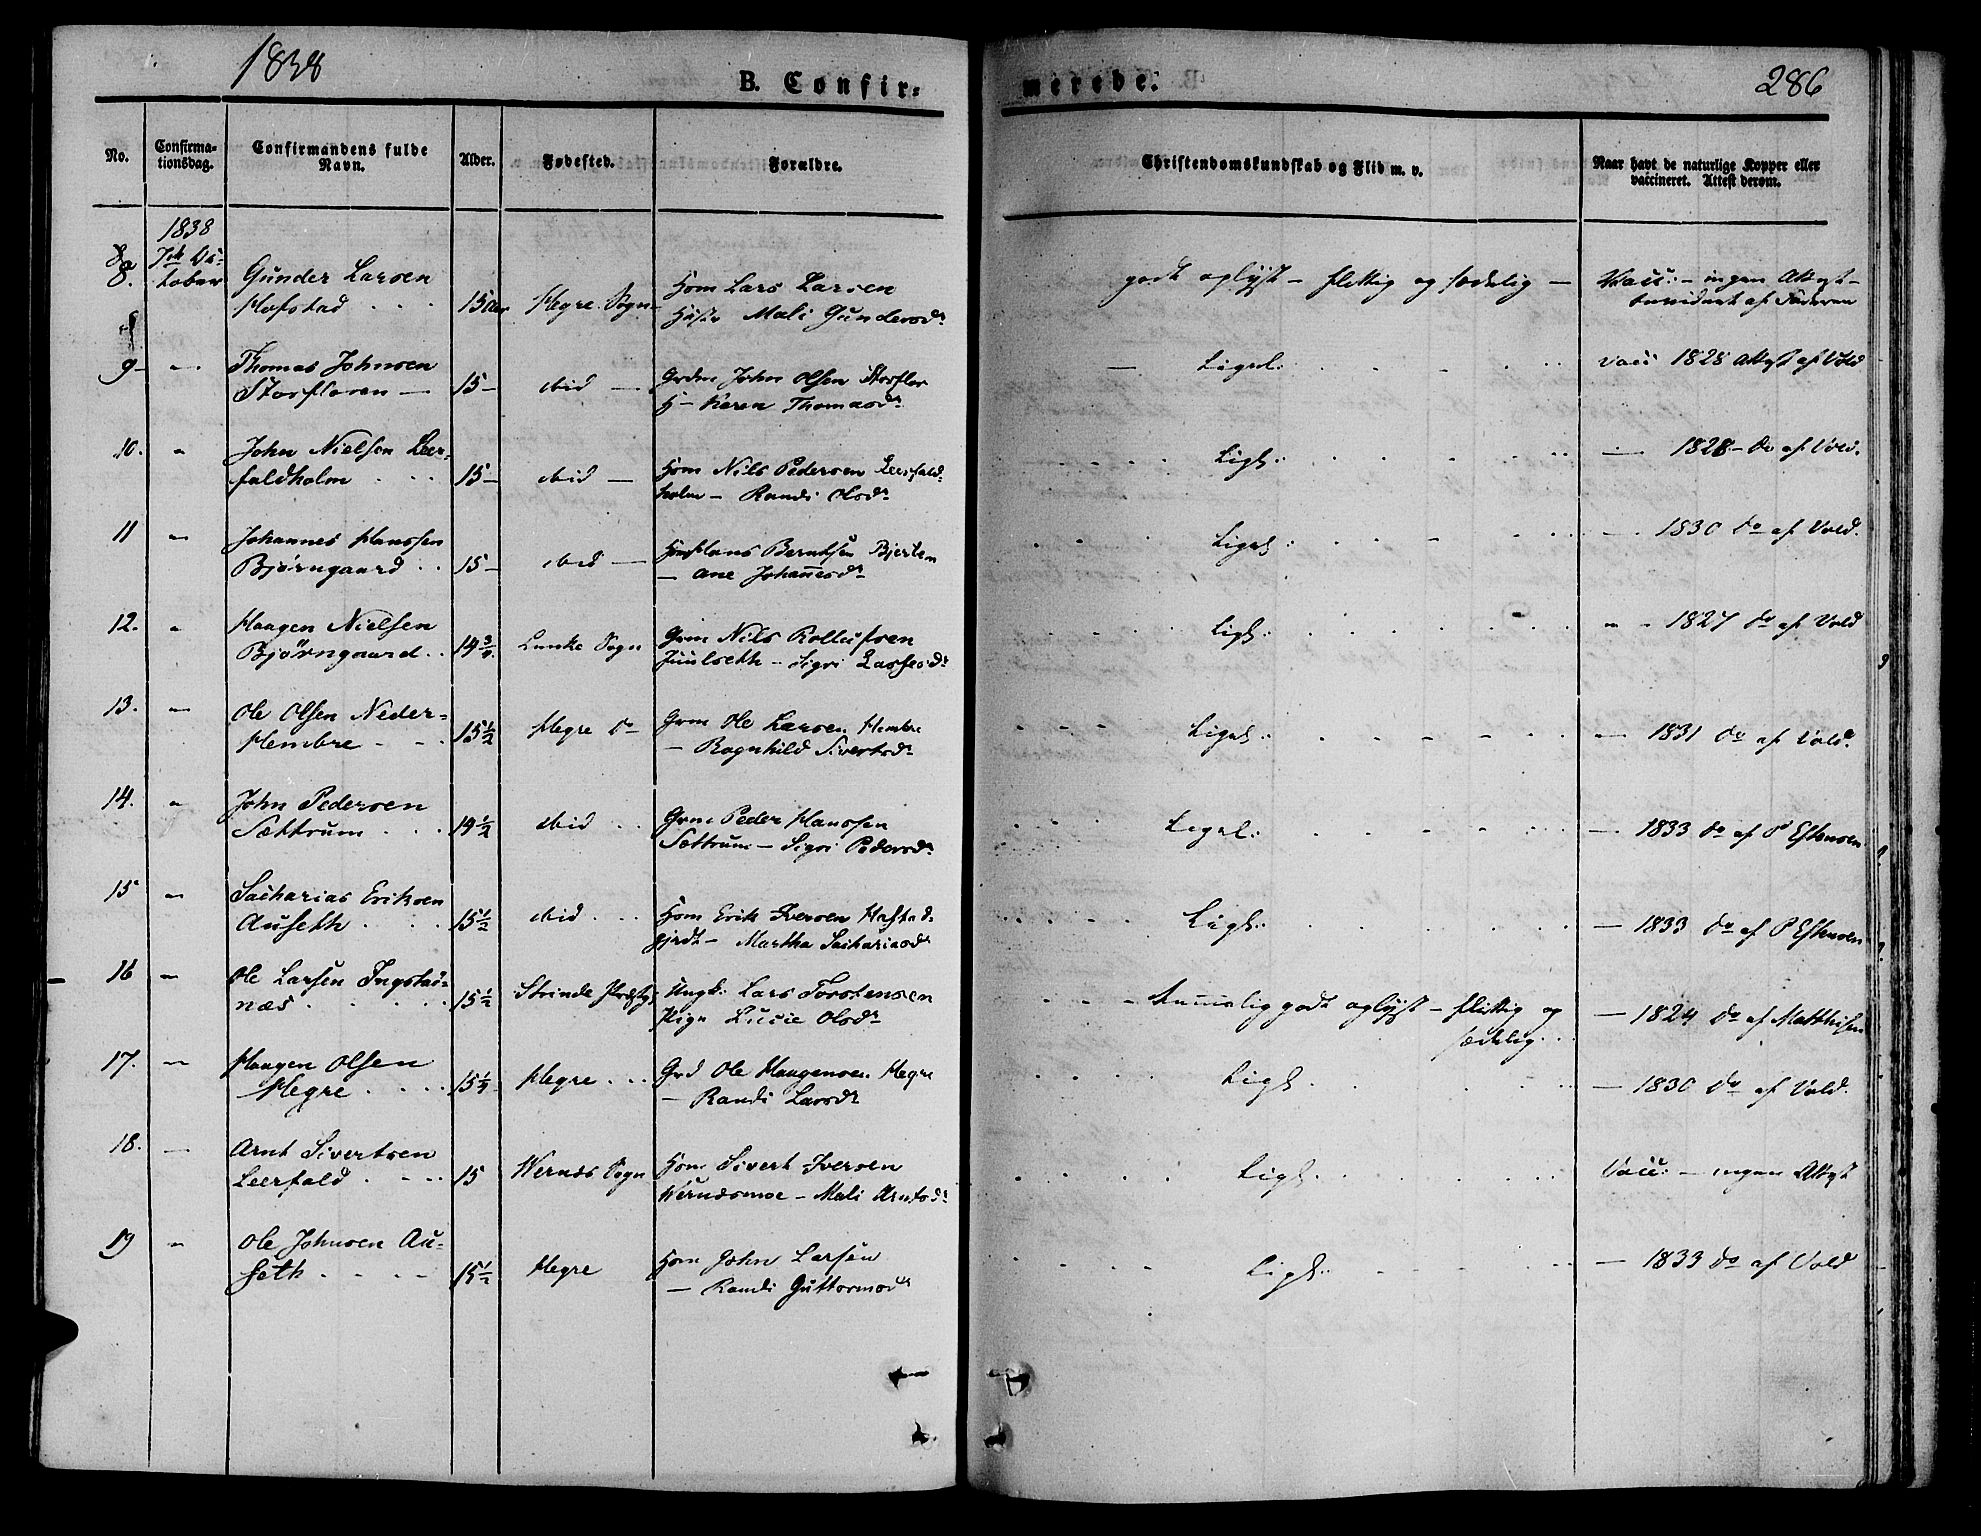 1838
B. Confir=
merede.
286
No.
Confirma-
tionsdag.
Confirmandens fulde
Navn.
Alder.
Fødested.
Forældre.
Christendomskundskab og Flid m. v.
Naar havt de naturlige Kopper eller
vaccineret. Attest derom.
1838
8. 7de Oc-
tober
Gunder Larsen
Hofstad 15 Aar Hegre Sogn Hom Lars Larsen
Hustr Mali Gundersdr
godt oplyst — flittig og sædelig — Vacc: — ingen Attest —
af Faderen
9 — Thomas Johnsen
Storfloren — 15 — ibid — Grdm John Olsen Storflor
H — Karen Thomasdr
Ligel: vacc 1828 Attest af Vold
10. " John Nielsen Leer-
faldholm 15 — ibid — Hom Nils Pedersen Leerfald-
holm — Randi Olsdr
Ligl: — 1828 — do af Vold.
11 — Johannes Hanssen
Bjørngaard 15 — ibid — Hom Hans Berntsen
— Ane Johanesdr
Ligel: — 1830 do af Vold.
12. " Haagen Nielsen
Bjørngaard 14 3/4 Lunke Sogn Grm Nils
— Sigri Larsesdr
Ligl: " 1827 do af Vold
13. — Ole Olsen Neder-
Hembre 15 1/2 Hegre do Grm Ole Larsen Hembre
— Ragnhild Sivertsdr
Ligel: — 1831 do af Vold.
14. " John Pedersen
Sættrum 14 1/2 ibid Grm Peder Hanssen
Sættrum — Sigri Pedersdr
Ligel: — 1833 do af P Estensen
15 " Sacharias Eriksen
Auseth 15 1/2 ibid Hom Erik Iversen
— Martha Sachariasdr
Ligl: — 1833 do af P Estensen
16 — Ole Larsen Ingstad-
næs 15 1/2 Strinde Præstg: Ungk: Lars Torstensen
Pige Lucie Olsdr
temmelig godt oplyst — flittig og
sædelig — 1824 do af Matthisen
17. — Haagen Olsen
Hegre 15 1/4 Hegre Grd Ole Haagensen Hegre
— Randi Larsdr
Ligl — 1830 do af Vold.
18. — Arnt Sivertsen
Leerfald 15 Wernæs Sogn Hom Sivert Iversen
Wernæsmoe — Mali Arntsdr
Ligl. Vacc: — ingen Attest
19 " Ole Johnsen Au-
seth 15 1/2 Hegre Hom John Larsen
— Randi Guttormsdr
Ligl: — 1833 do af Vold